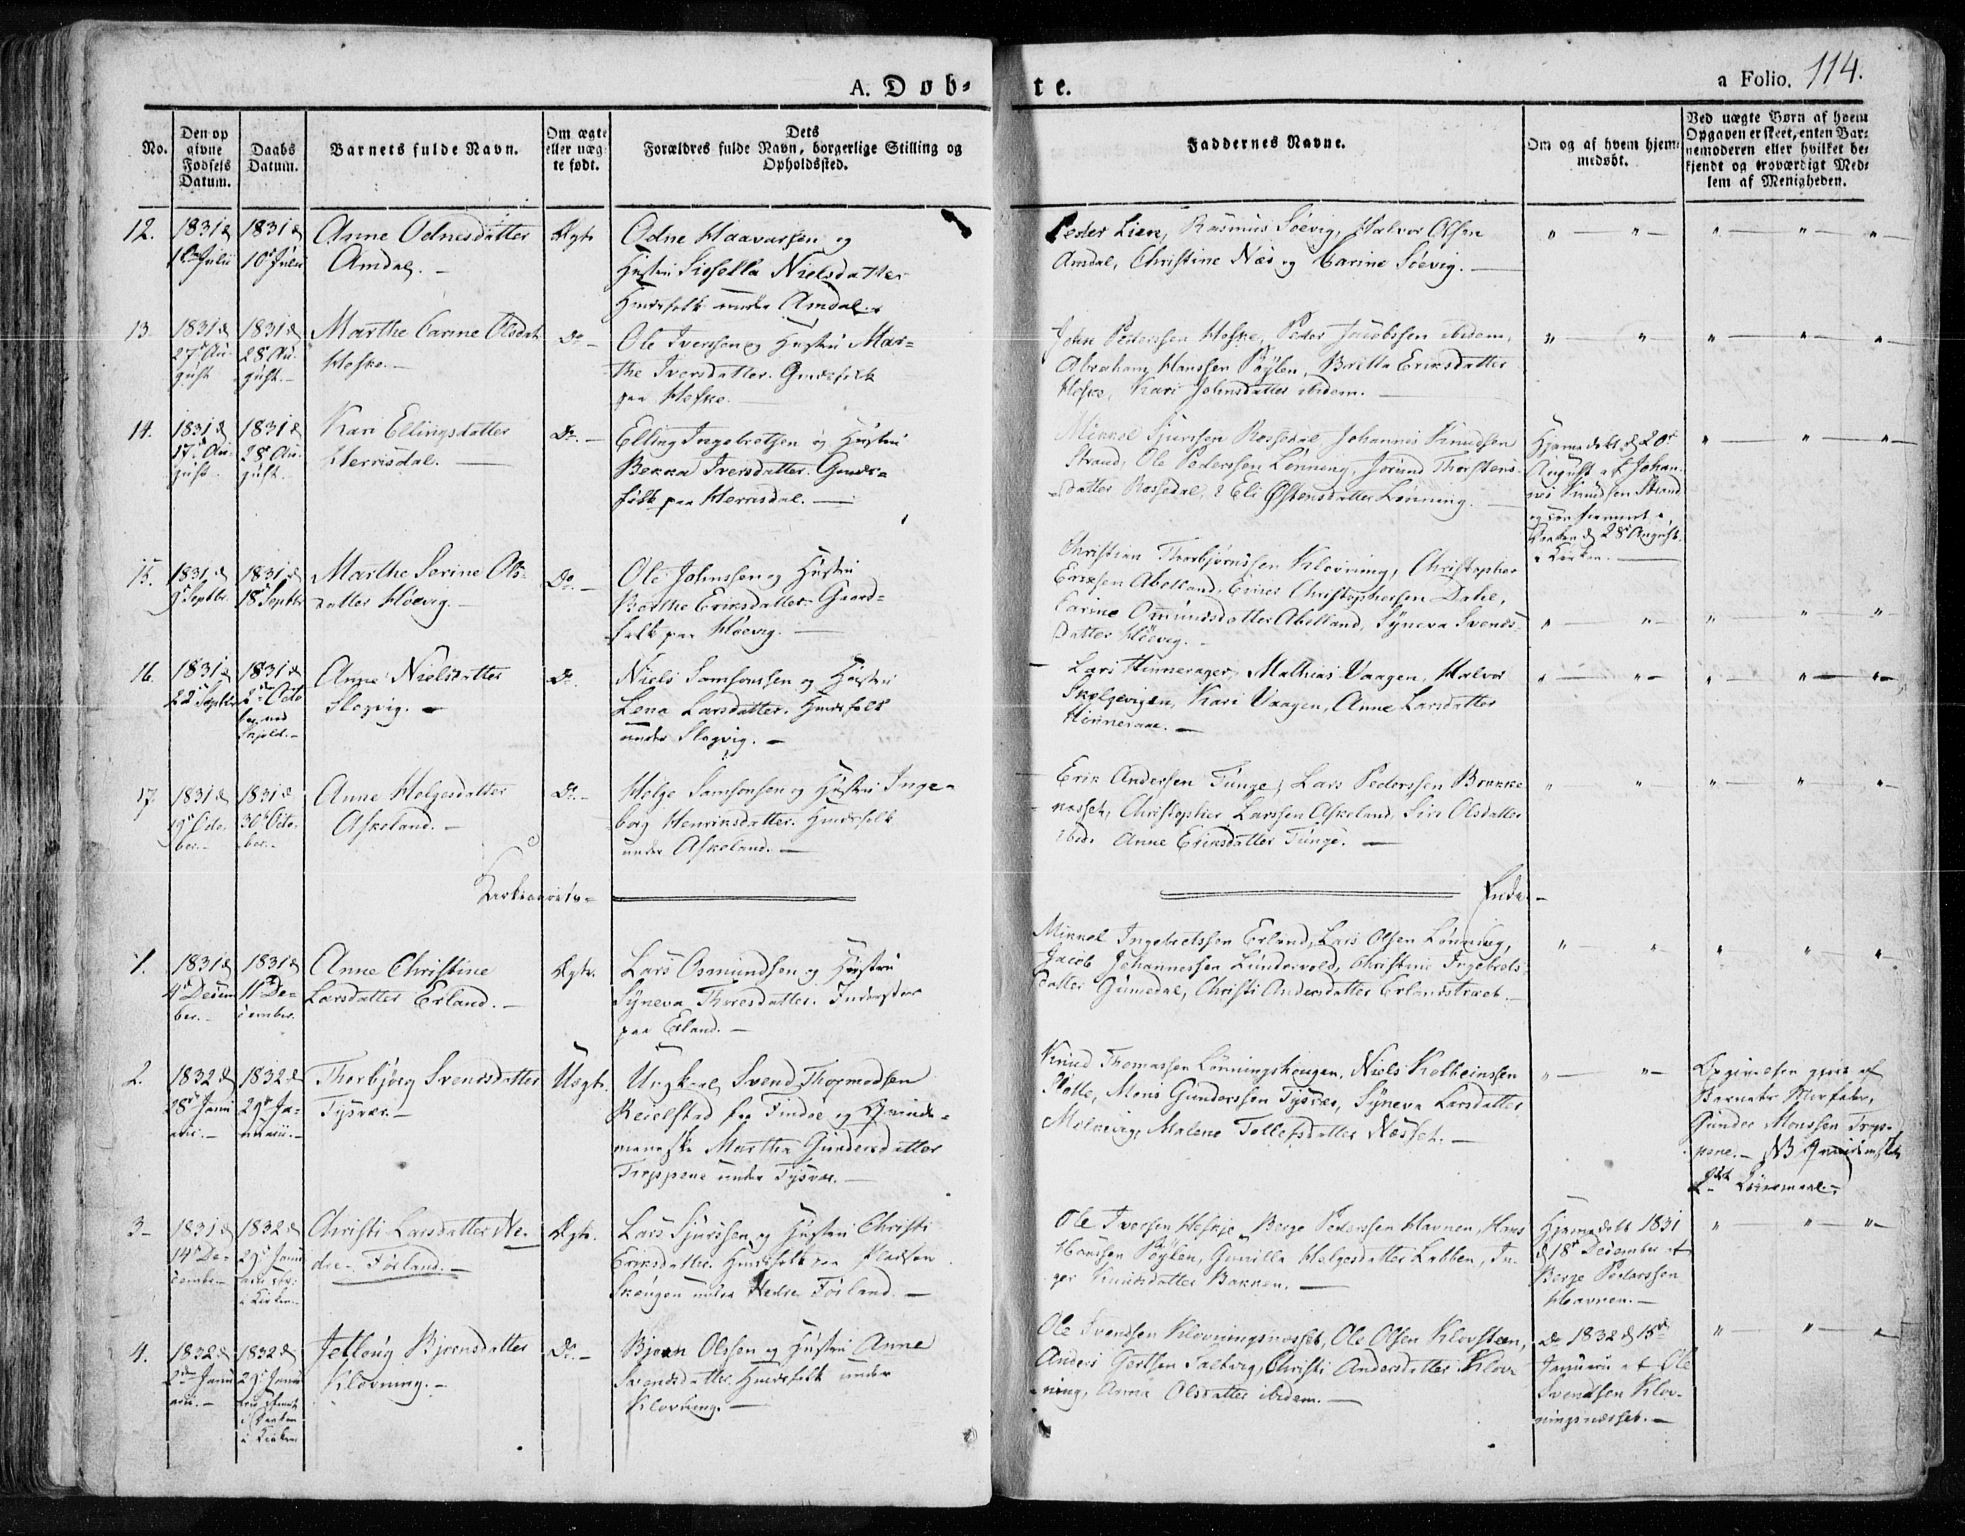 A. Døb-
te.
a Folio. 114.
No.
Den op
givne
Fødsels
Datum.
Daabs
Datum.
Barnets fulde Navn.
Om ægte
eller uæg-
te født.
Dets
Forældres fulde Navn, borgerlige Stilling og
Opholdssted.
Faddernes Navne.
Om og af hvem hjem-
medøbt.
Ved uægte Børn af hvem
Opgaven er skeet, enten Bar-
nemoderen eller hvilket be-
kjendt og troværdigt Med-
lem af Menigheden.
12.
1831 d
Julii
1831 d
10 Julii
Anne Odnesdatter
Amdal. -
Ægte
Odne Haavarsen og
Hustru Sissella Nielsdatter
Huusfolk under Amdal.
Peder Lien, Rasmus Søevig, Halvor Olsen
Amdal, Christine Næs og Carine Søevig. -
13.
1831 d
27 Au-
gust
1831 d
28 Au-
gust. -
Marthe Carine Olsdat
Heske. -
Do -
Ole Iverssen og Hustru Mar-
the Iversdatter. Huusfolk
paa Heske.
John Pederssen Heske, Peder Jacobssen ibidem,
Abraham Hanssen Pøylen, Britta Eriksdatter
Heske, Kari Johnsdatter ibidem. -
14.
1831 d
17 Au-
gust.
1831 d
28 Au-
gust.
Kari Ellingsdatter
Herrisdal. -
Do. -
Elling Ingebretsen og Hustru
Iversdatter. Gaard-
folk paa Herrisdal. -
Mikkel Sjurssen Rossedal, Johannis Knudsen
Strand, Ole Pederssen Lønning, Jorund Thorstens-
datter Rossedal, & Eli Østensdatter Lønning.
Hjemmedøbt d 20
August af Johan-
nis Knudsen Strand
28 August.
i Kirken.
15.
1831 d
9 Septbr.
1831 d
18 Septbr
Marthe Serine Ols-
datter Høevig. -
Do -
Ole Johnssen og Hustru
Berthe Eriksdatter. Gaard-
folk paa Høevig. -
Christian Thorbjørnssen Klovning, Christopher
Eriksen Abelland, Christophersen Dahle,
Carine Omundsdatter Abelland, Syneva Svends-
datter Høevig. -
16.
1831 d
22 Septbr
1831 d
2 Octo
Anne Nielsdatter
Slogvig. -
Do.
Niels Samsonssen og Hustru
Lena Larsdatter. Huusfolk
under Slogvig. -
Lars Hinnerager, Mathias Vaagen, Halvor
Kari Vaagen, Anne Larsdatter
17
1831 d
19 Octo
ber. -
1831 d
30 Octo-
ber. -
Anne Helgesdatter
Askeland. -
Do. -
Helge Samsonsen og Hustru Inge-
borg Henriksdatter. Huusfolk
under Askeland. -
Erik Andersen Tunge, Lars Pederssen Brække
næsset, Christopher Larssen Askeland, Siri Olsdatter
ibid. Anne Eriksdatter Tunge. -
Ende. -
1.
1831 d
4 Decem
ber. -
1831 d
11 De-
cember.
Anne Christine
Larsdatter Erland. -
Ægte.
Lars Osmundsen og Hustru
Syneva Thoresdatter. Inderster
paa Erland. -
Mikkel Ingebretssen Erland, Lars Olsen Lønning,
Jacob Johannessen Lundervold, Christine Ingebrets-
datter Gumedal, Christi Andersdatter Erlandstræet. -
2.
1832 d
28 Janu
arii. -
1832 d
29 Ja-
nuarii. -
Thorbjørg Svendsdatter
Tysvær. -
Uægte.
Ungkarl Svend Thormodsen
Reielstad fra Findøe og Qvinde-
menneske Martha Gundersdatter
Troppene under Tysvær. -
Knud Thomassen Lønningshougen, Niels Kolbeinssen
Mons Gunderssen Tysvær, Syneva Larsdatter
Malene Tollefsdatter Næsset. -
Opgivelsen gjort af
Barnets Morfader,
Gunder Monssen Trop-
pene. - NB Qvindemskets
2det Leiermaal. -
3 -
1831 d
14 De-
cember. -
1832 d
29 Janu
i Kirken
Christi Larsdatter Ne-
dre Førland. -
Ægte.
Lars Sjurssen og Hustru Christi
Eriksdatter. Huusfolk paa Pladsen
Skougen under Nedre Førland. -
Ole Iversen Heskje, Berge Pederssen Havnen, Hans
Hanssen Pøylen, Gunilla Helgesdatter Labben, In-
ger Knutsdatter Bakken. -
Hjemmedøbt 1831
d 18 December af
Berge Pederssen
Havnen. -
4.
1832 d
2den Janu
arii. -
1832 d
29 Janu
i Kirken
Jetloug Bjørnsdatter
Klovning. -
Do. -
Bjørn Olssen og Hustru Anne
Svendsdatter. Huusfolk under
Klovning. -
Ole Svendsen Klovningsnæsset, Ole Olsen Klovsteen,
Anders Gertsen Saltvig, Christi Andersdatter Klov-
ning, Anna Olsdatter ibidem. -
do 1832 d 15
Januarii af Ole
Svendsen Klov-
ningsnæsset. -